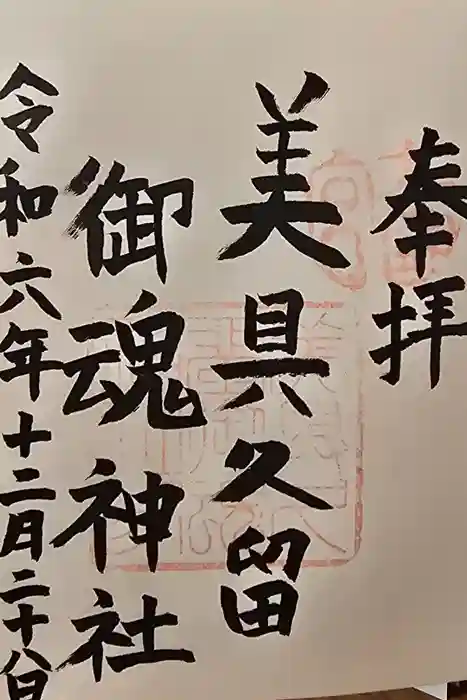 奉拝
美具久留
御魂神社
令和六年十二月二十八日